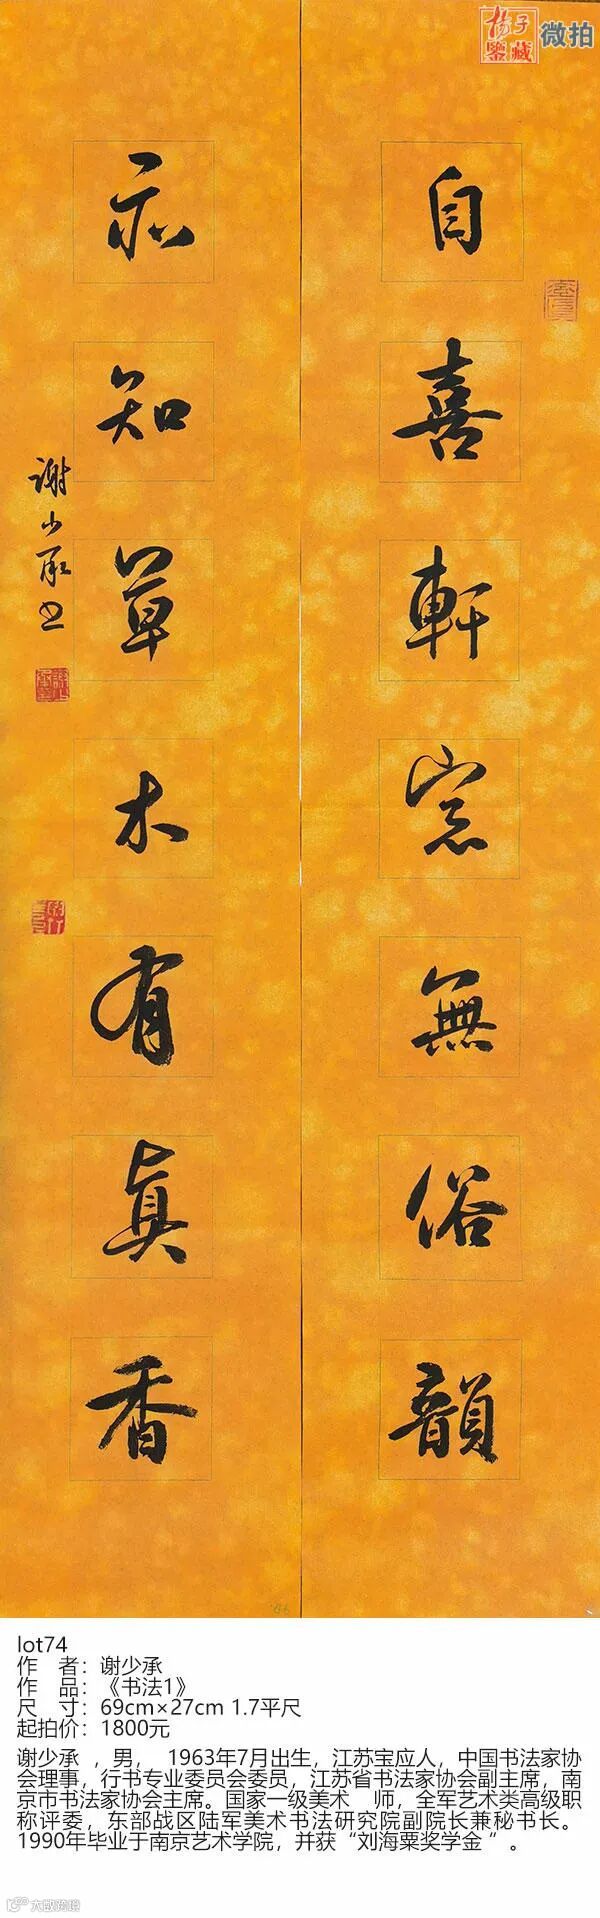 扬子
鑒藏
微拍
自喜軒窓無俗韻
亦知草木有眞香
謝少承书
lot74
作 者：谢少承
作 品：《书法1》
尺 寸：69cm×27cm 1.7平尺
起拍价：1800元
谢少承 ，男， 1963年7月出生，江苏宝应人，中国书法家协
会理事，行书专业委员会委员，江苏省书法家协会副主席，南
京市书法家协会主席。国家一级美术 师，全军艺术类高级职
称评委，东部战区陆军美术书法研究院副院长兼秘书长。
1990年毕业于南京艺术学院，并获“刘海粟奖学金 ”。
大数跨境